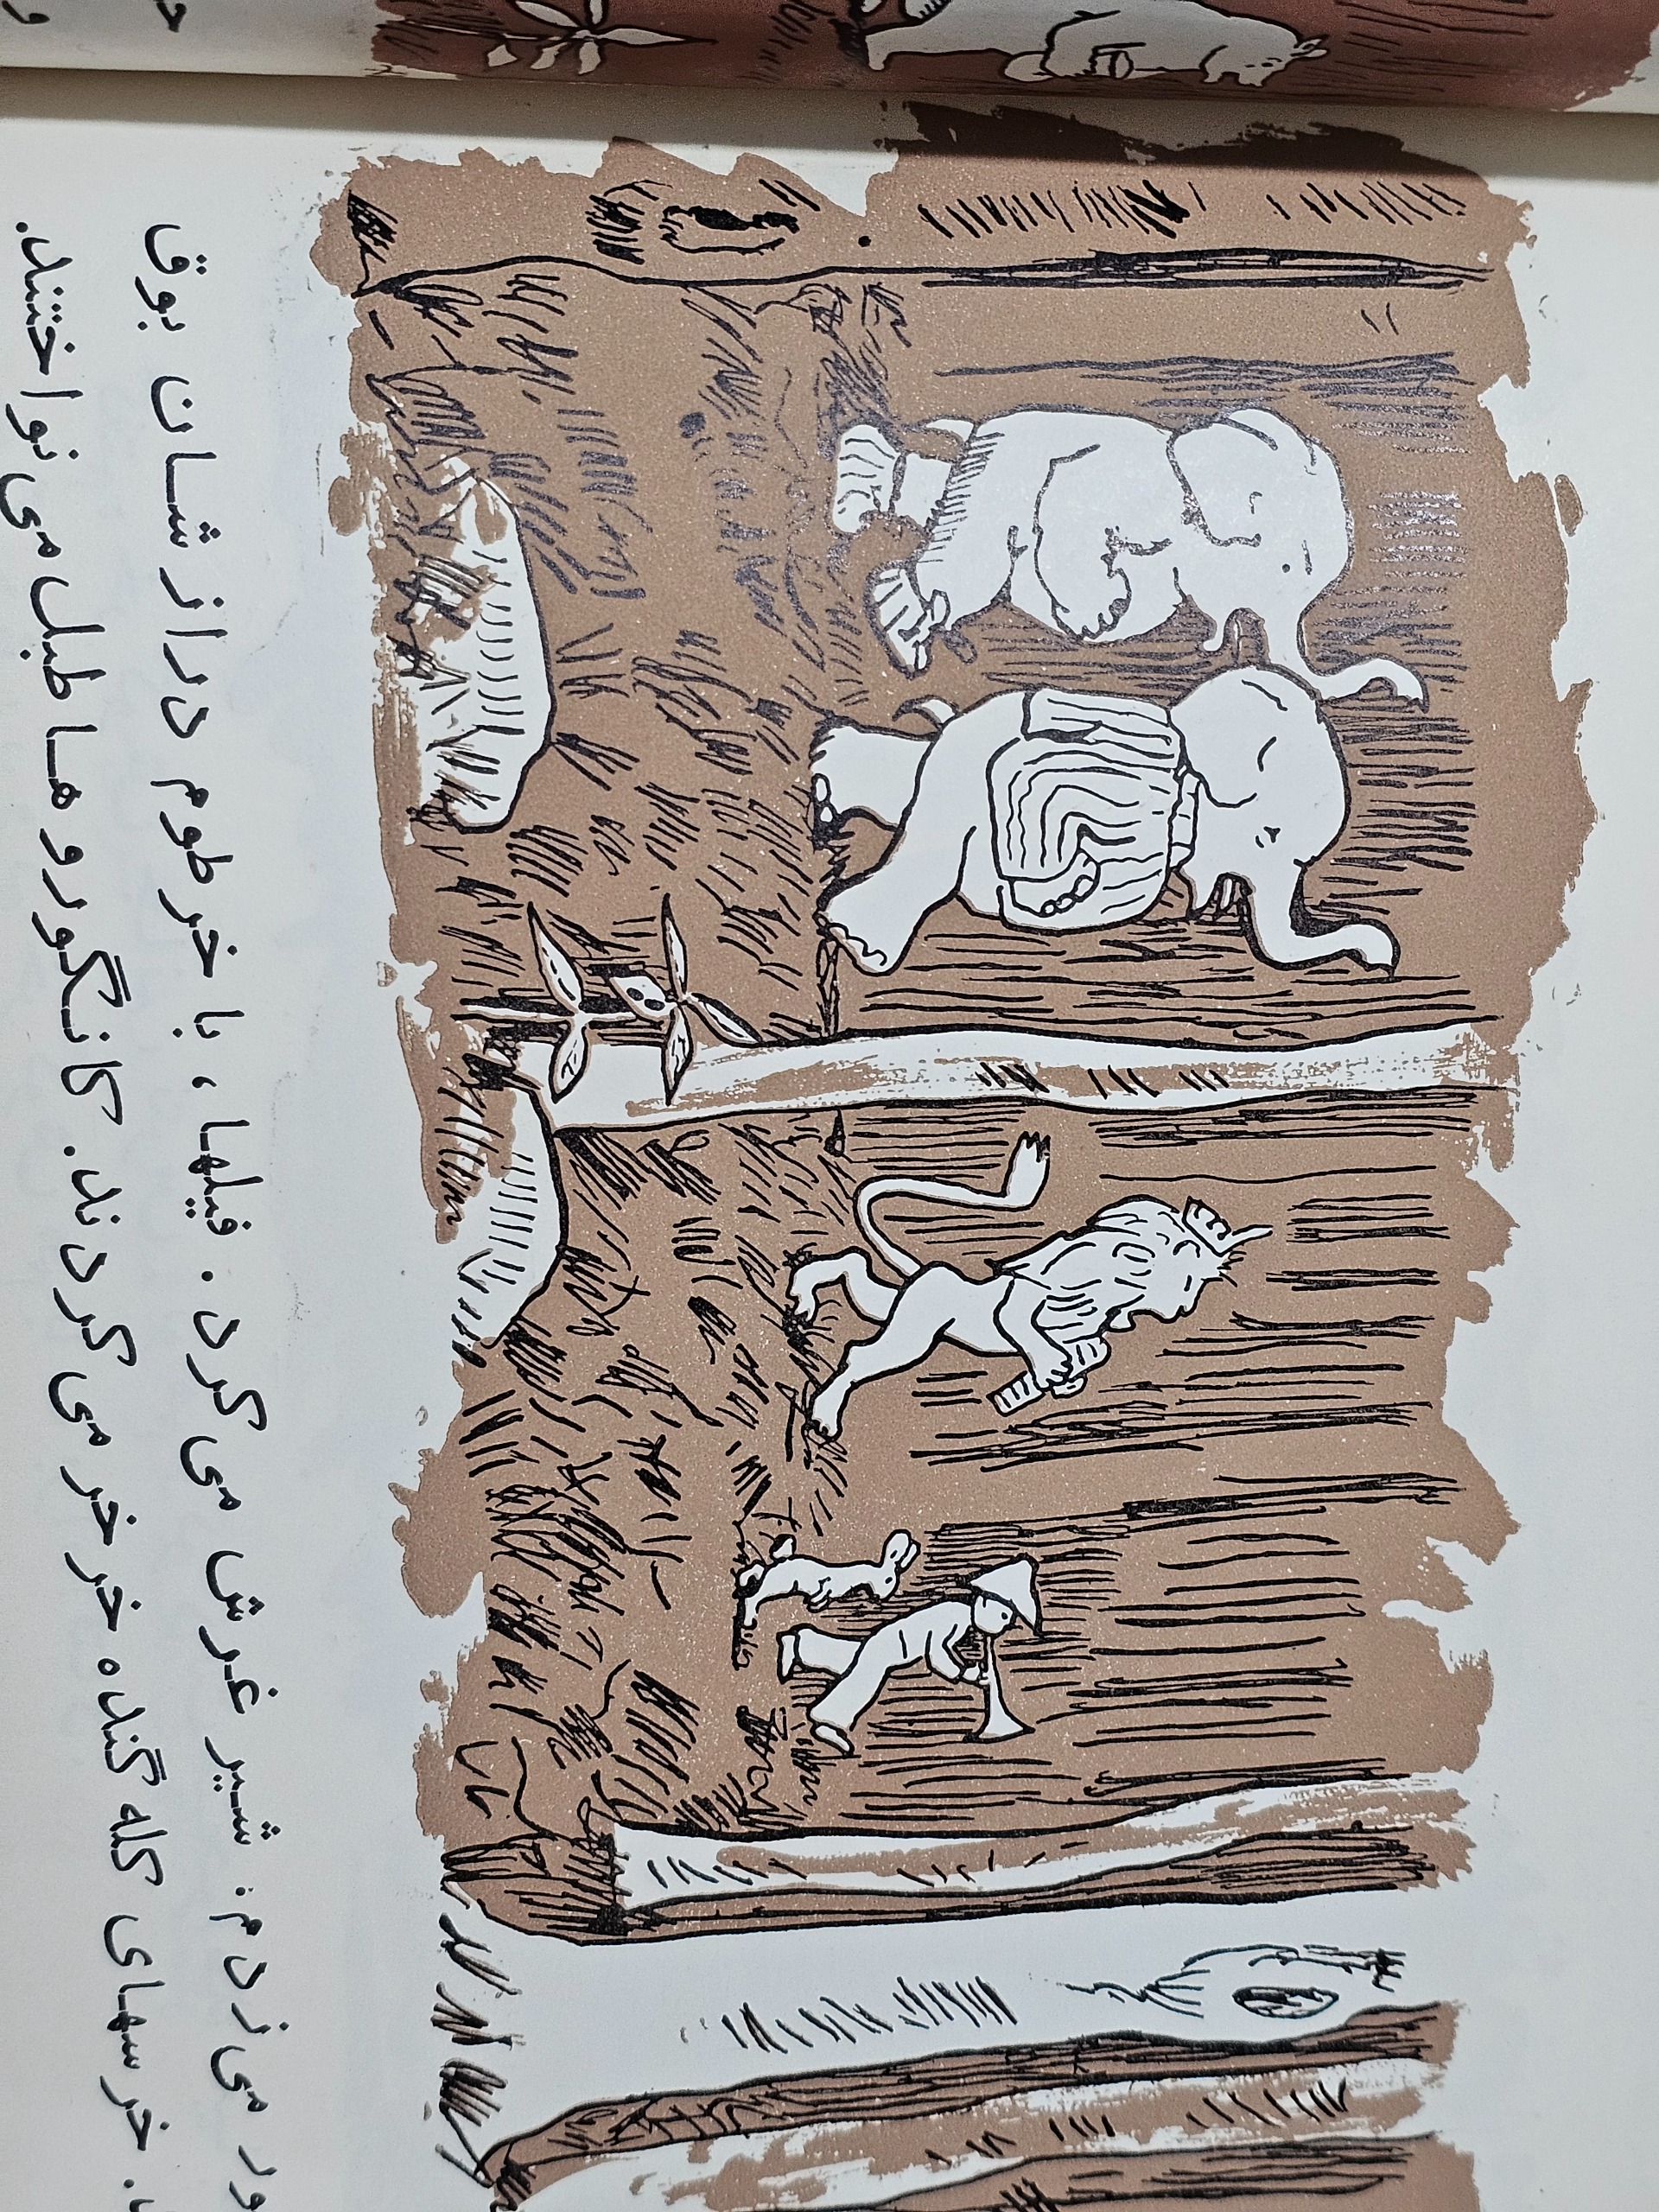 ور می زدم. شیر غرش می کرد. فیلها، با خرطوم درازشان بوق
. خرسهای کله گنده خر خر می کردند. کانگورو ها طبل می نواختند.